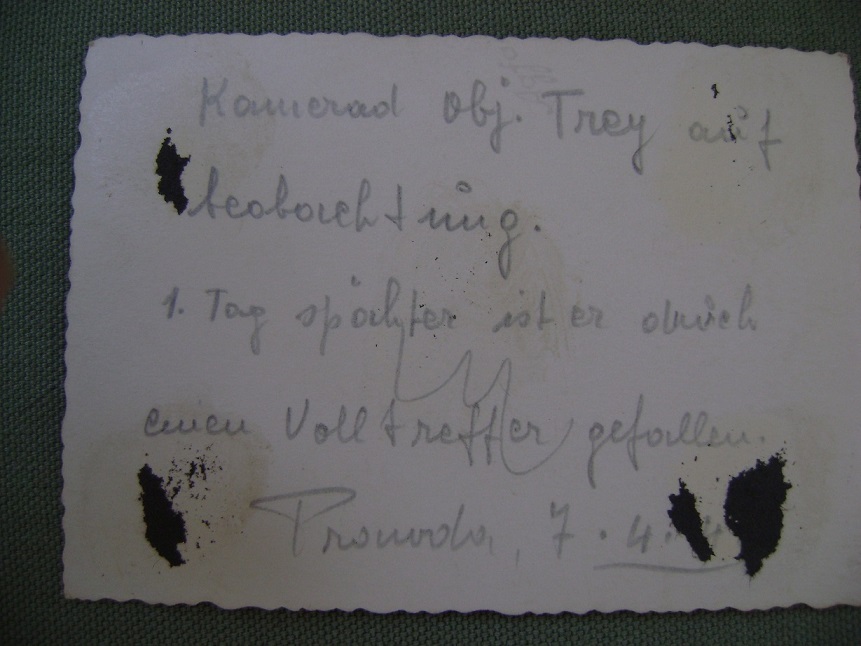 Kamerad Obj. Trey auf
beobachtung.
1. Tag spähter ist er durch
einen Volltreffer gefallen.
7. 4.